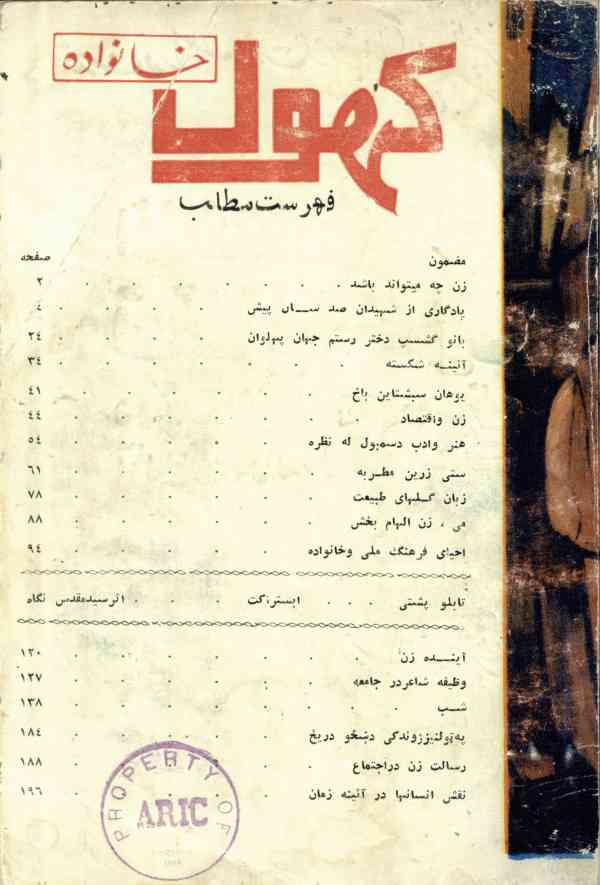 خانواده
کهول
فهرست مطالب
مضمون صفحه
زن چه میتواند باشد . . . . . . . ۲
یادگاری از شهیدان صد ســال پیش . . . . . ٤
بانو گشسپ دختر رستم جهان پهلوان . . . . . ۲٤
آئینــه شکسته . . . . . . . ۳٤
یوهان سبشتاین باخ . . . . . . ٤۱
زن واقتصاد . . . . . . . ٤٤
هنر وادب دسمبول له نظره . . . . . ٥٤
ستی زرین مطــربه . . . . . . ٦۱
زبان گــلهای طبیعت . . . . . ۷۸
می ، زن الهام بخش . . . . . ۸۸
احیای فرهنگ ملی وخانواده . . . . . ۹٤
تابلو پشتی . . . ابسترکت . . . اثرسیدمقدس نگاه
آینــــده زن . . . . . . . ۱۲۰
وظیفه شاعردر جامعه . . . . . . ۱۲۷
شــب . . . . . . . ۱۳۸
په ټولنیز ژوندکی دښځو دریځ . . . . . ۱۸٤
رسالت زن دراجتماع . . . . . ۱۸۸
نقش انسانها در آئینه زمان . . . . . ۱۹٦
PROPERTY OF
ARIC